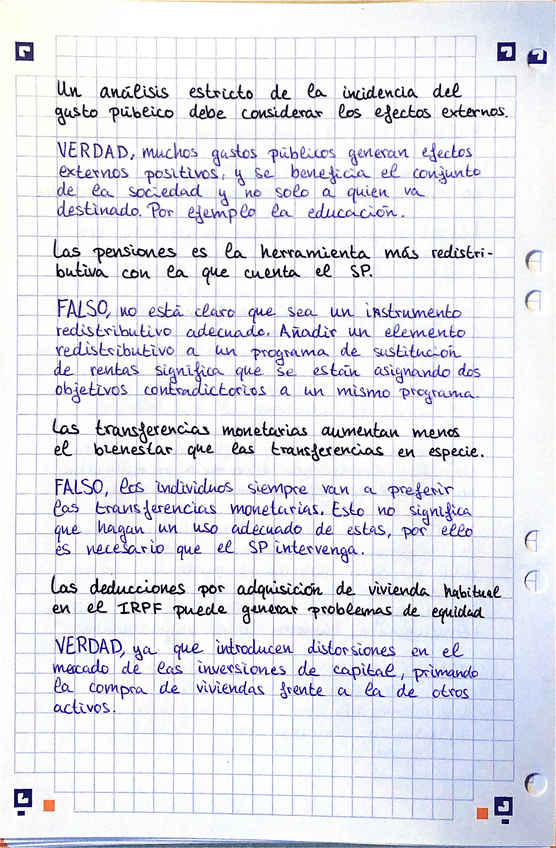 Un análisis estricto de la incidencia del
gusto público debe considerar los efectos externos.
VERDAD, muchos gastos públicos generan efectos
externos positivos, y se beneficia el conjunto
de la sociedad y no solo a quien va
destinado. Por ejemplo la educación.
Las pensiones es la herramienta más redistri-
butiva con la que cuenta el SP.
FALSO, no está claro que sea un instrumento
redistributivo adecuado. Añadir un elemento
redistributivo a un programa de sustitución
de rentas significa que se están asignando dos
objetivos contradictorios a un mismo programa.
Las transferencias monetarias aumentan menos
el bienestar que las transferencias en especie.
FALSO, los individuos siempre van a preferir
las transferencias monetarias. Esto no significa
que hagan un uso adecuado de estas, por ello
es necesario que el SP intervenga.
Las deducciones por adquisición de vivienda habitual
en el IRPF puede generar problemas de equidad
VERDAD, ya que introducen distorsiones en el
mercado de las inversiones de capital, primando
la compra de viviendas frente a la de otros
activos.